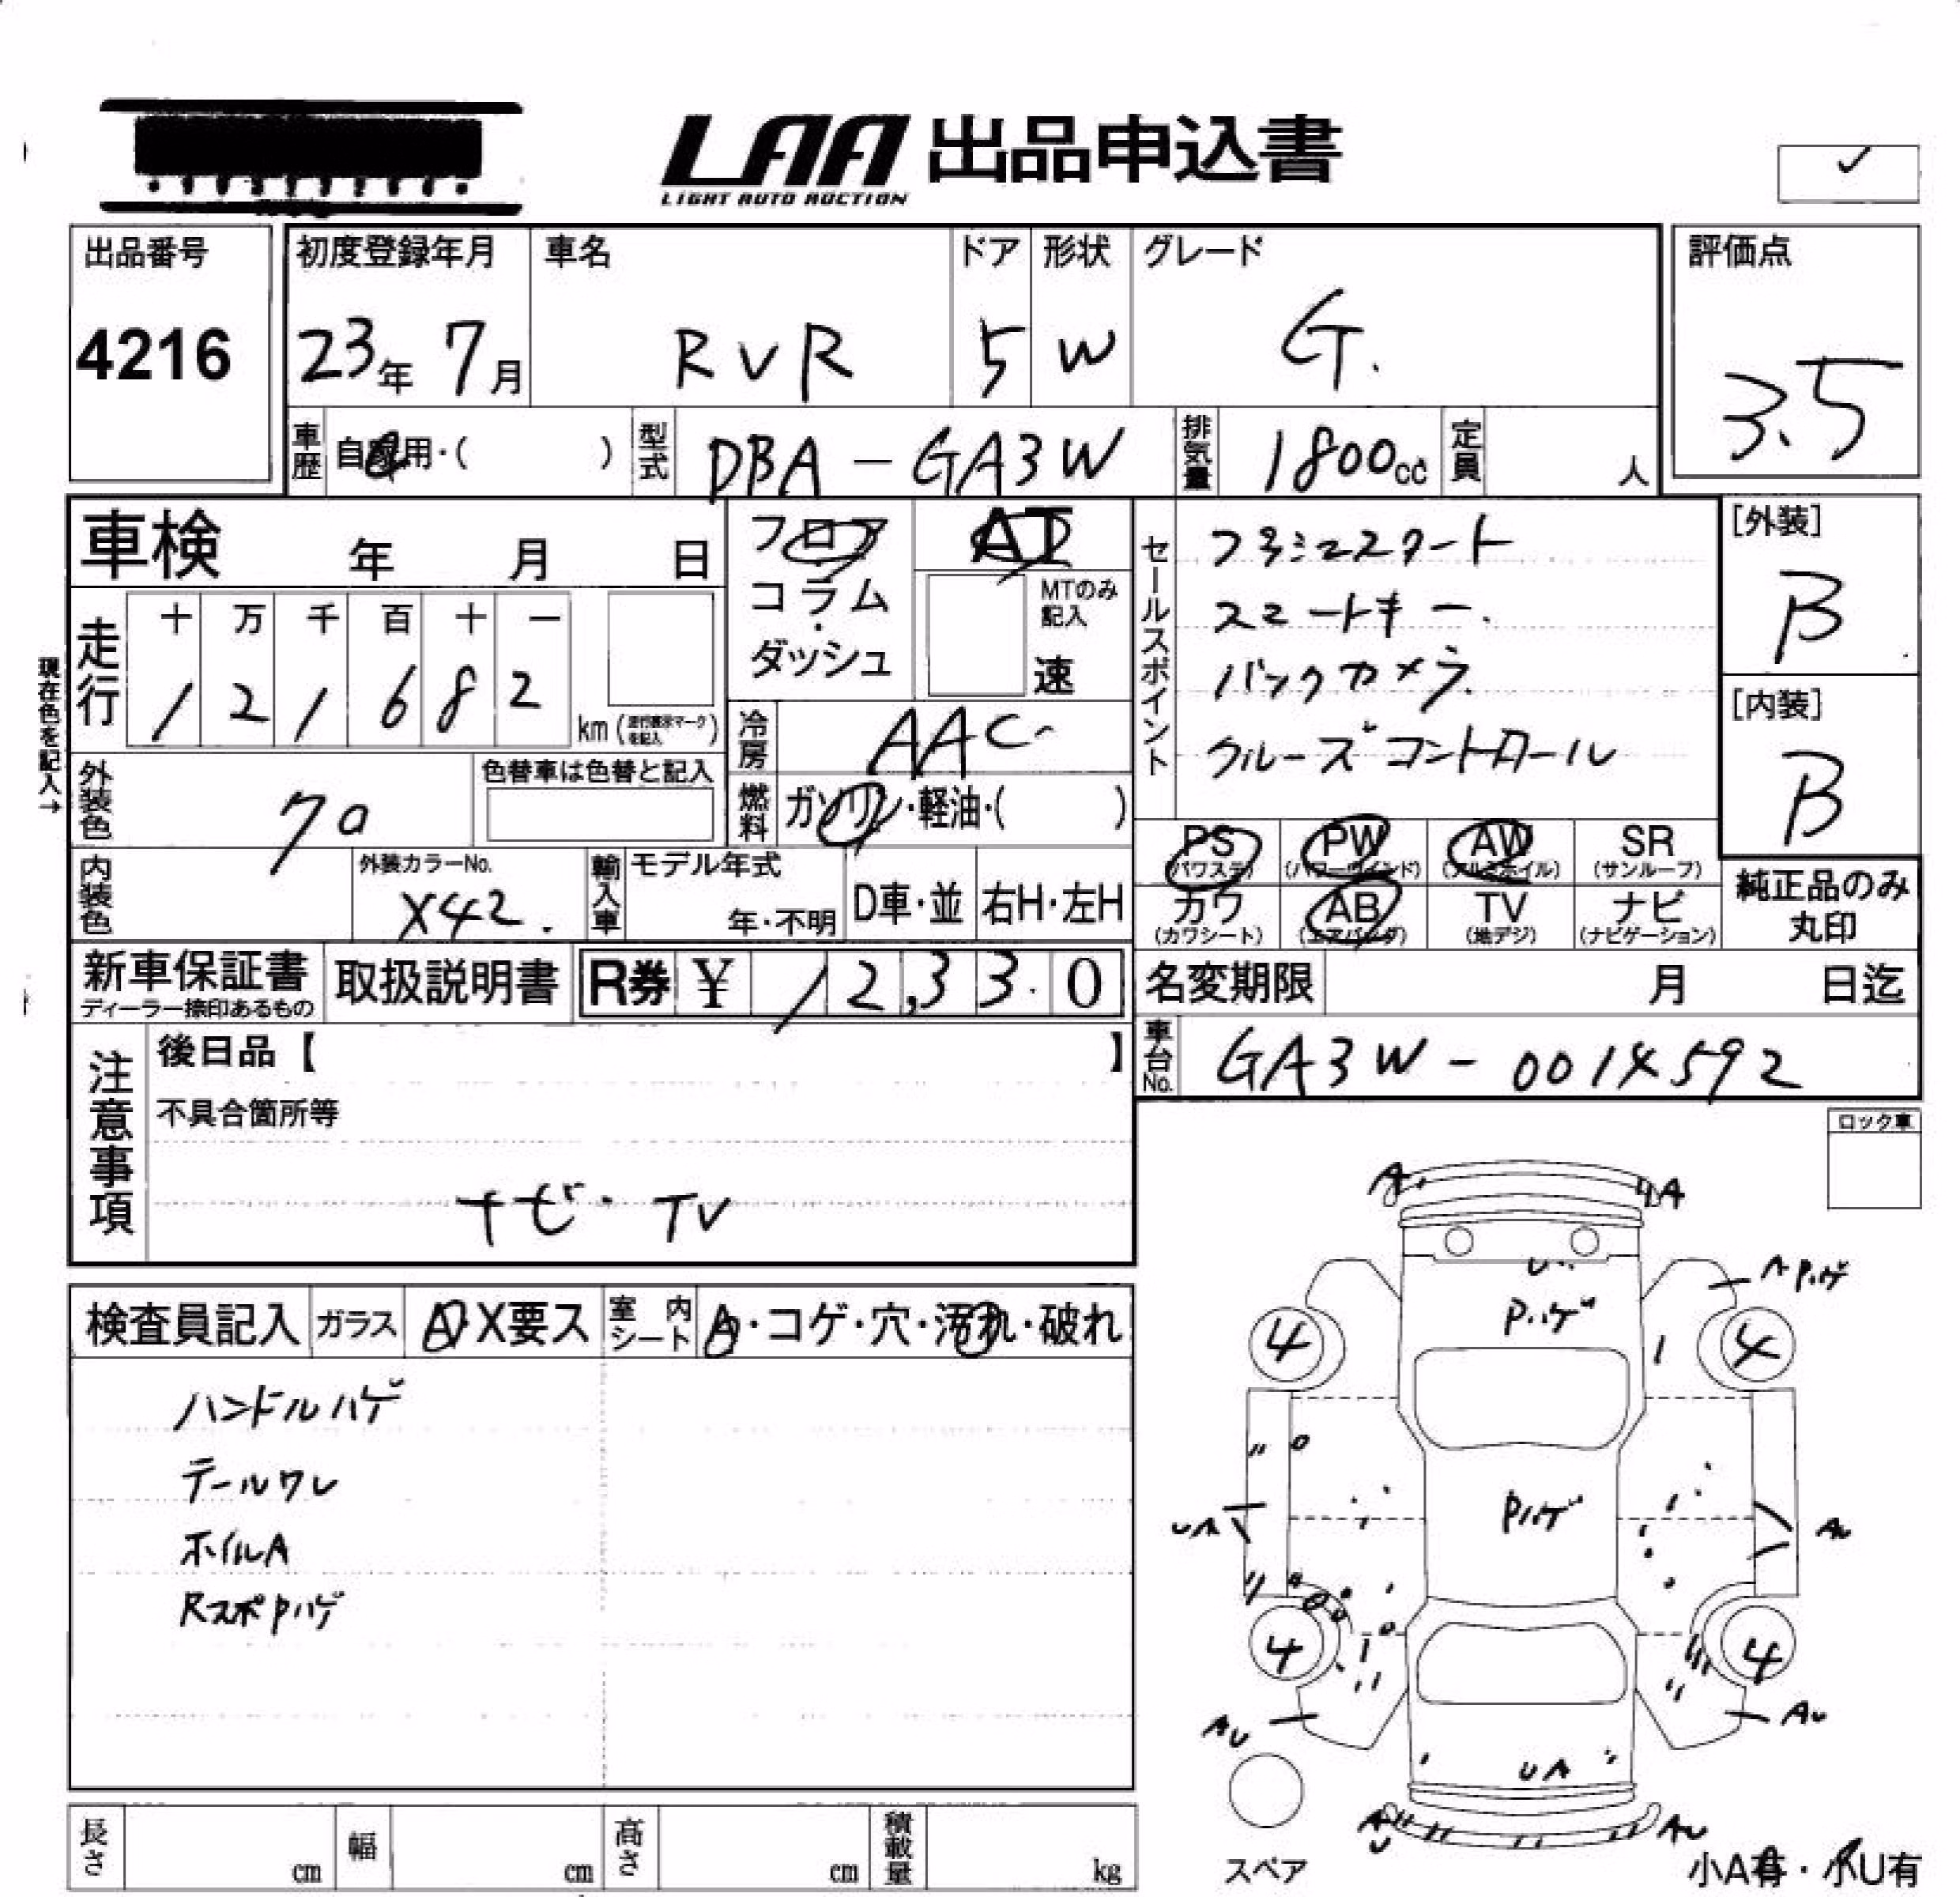 LAA 出品申込書
LIGHT AUTO AUCTION
✓
出品番号
4216
初度登録年月
23年 7月
車名
RVR
ドア
5
形状
W
グレード
G.
評価点
3.5
車歴 自家用・( )
型式 DBA-GA3W
排気量 1800cc
定員 人
車検 年 月 日
フロア
コラム
・
ダッシュ
AT
MTのみ
記入
速
セールスポイント
プッシュスタート
スマートキー.
バックカメラ.
クルーズコントロール
[外装]
B
[内装]
B
現在色を記入→
走行
十 万 千 百 十 一
1 2 1 6 8 2
km (走行表示マークを記入)
冷房 AAC
外装色 クロ
色替車は色替と記入
燃料 ガソリン・軽油・( )
PS
(パワステ)
PW
(パワーウインド)
AW
(アルミホイル)
SR
(サンルーフ)
カワ
(カワシート)
AB
(エアバッグ)
TV
(地デジ)
ナビ
(ナビゲーション)
純正品のみ
丸印
内装色
外装カラーNo.
X42.
輸入車
モデル年式
年・不明
D車・並
右H・左H
新車保証書
ディーラー捺印あるもの
取扱説明書
R券 ¥ 12,33.0
名変期限 月 日迄
車台No. GA3W-0014592
注意事項
後日品【 】
不具合箇所等
ナビ・TV
ロック車
検査員記入
ガラス A・X要ス
室内シート
・コゲ・穴・汚れ・破れ
ハンドルハゲ
テールワレ
ホイルA
RスポPハゲ
A
A
A Pハゲ
Pハゲ
4
4
Pハゲ
UA
AU
4
4
AU
AU
UA
AU
AU
スペア
小A有・小U有
長さ cm
幅 cm
高さ cm
積載量 kg